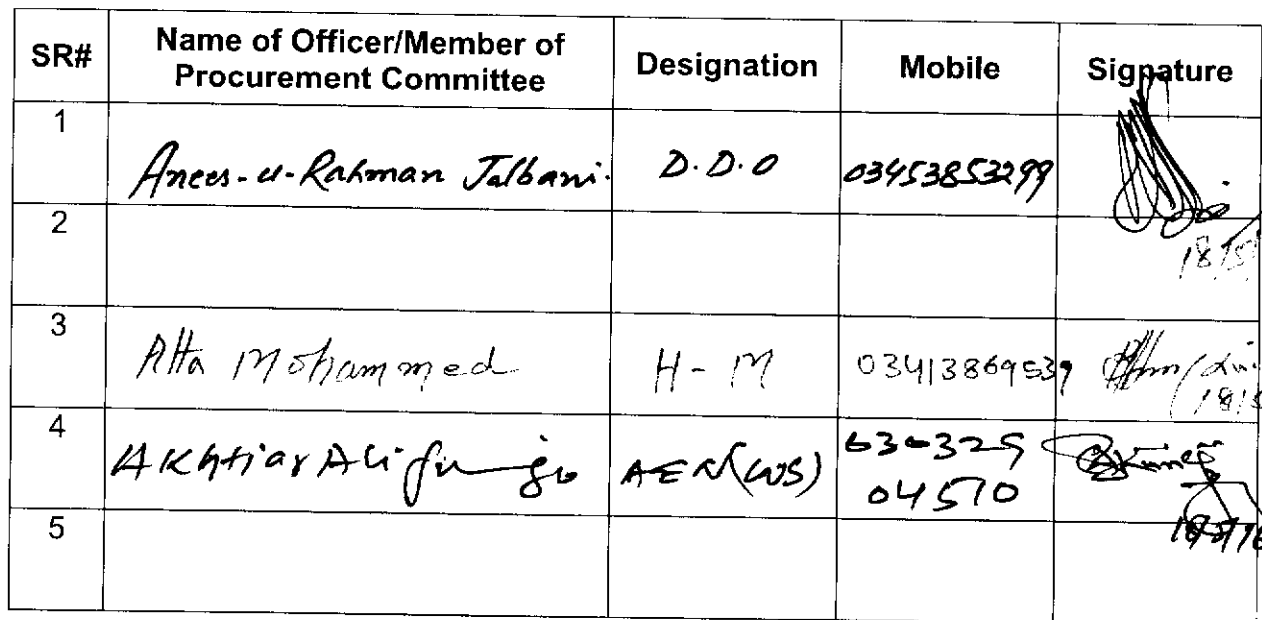 SR# Name of Officer/Member of Procurement Committee Designation Mobile Signature
1 Anees-u-Rahman Jalbani. D.D.O 03453853299
2
18/5/
3 Atta Mohammed H-M 03413869539
18/5
4 Akhtiar Ali AEN(WS) 030329
04570
5